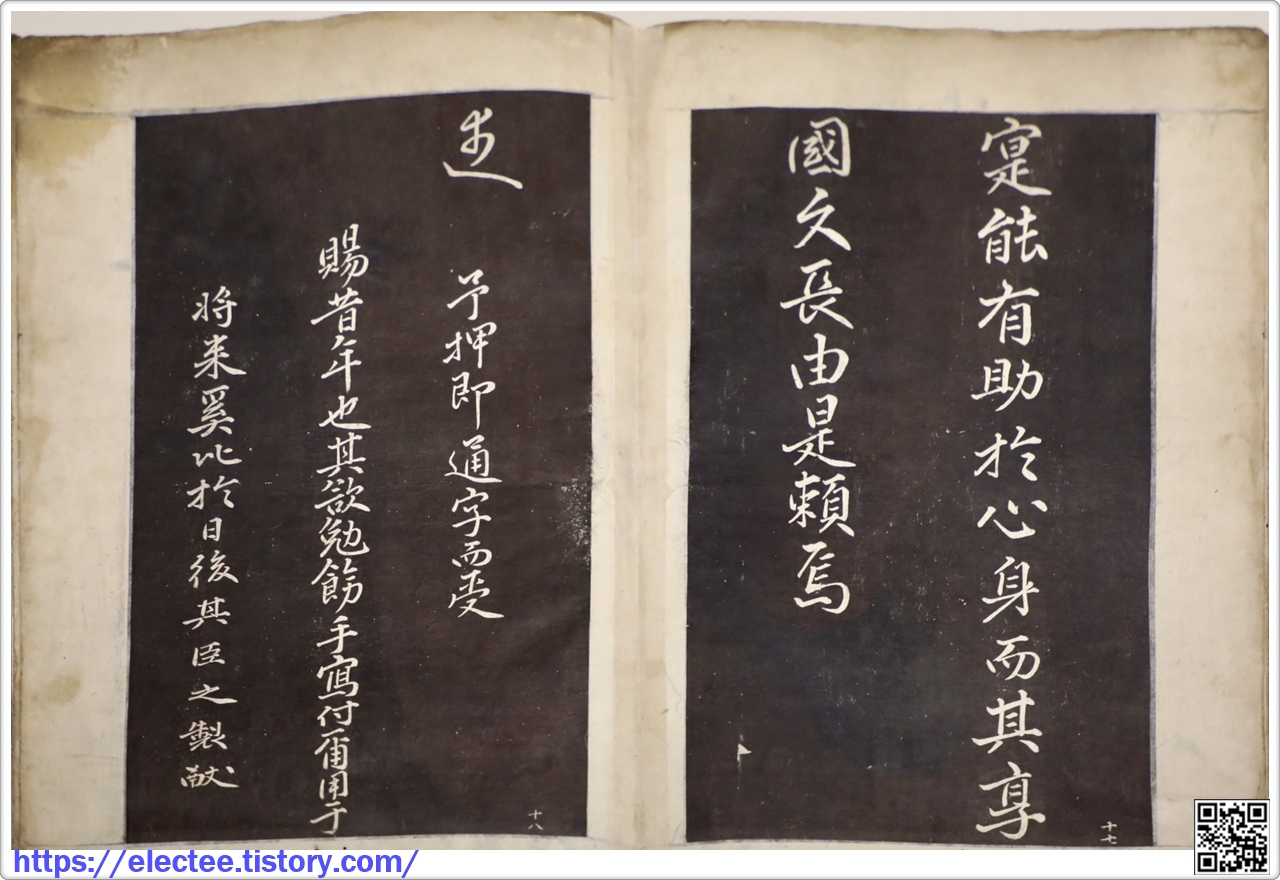 寔能有助於心身而其享
國久長由是賴焉
十七
予押即通字而受
賜昔年也其欲勉飭手寫付爾用于
將来奚比於日後其臣之製献
十八
https://electee.tistory.com/